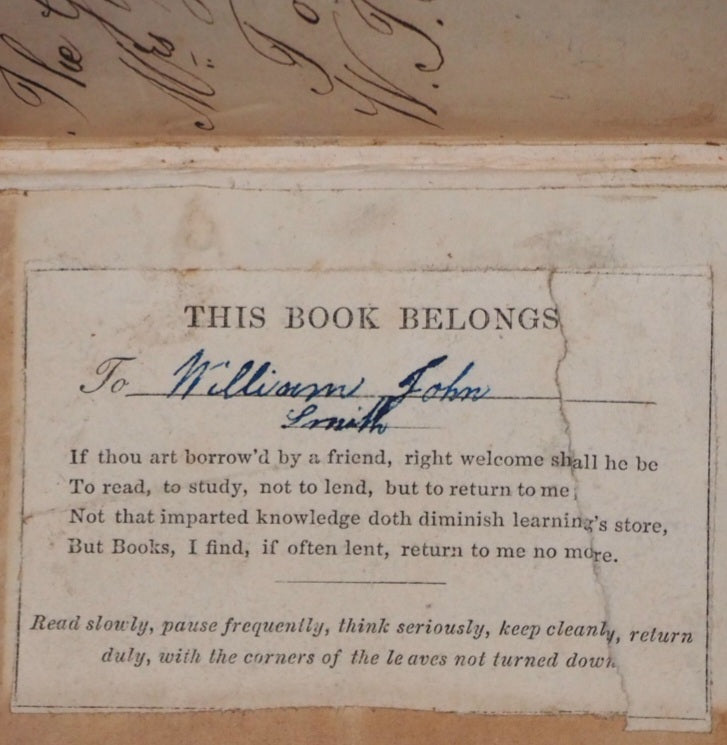 The
Mrs
To
W. J.
THIS BOOK BELONGS
To William John
Smith
If thou art borrow'd by a friend, right welcome shall he be
To read, to study, not to lend, but to return to me;
Not that imparted knowledge doth diminish learning's store,
But Books, I find, if often lent, return to me no more.
Read slowly, pause frequently, think seriously, keep cleanly, return
duly, with the corners of the leaves not turned down